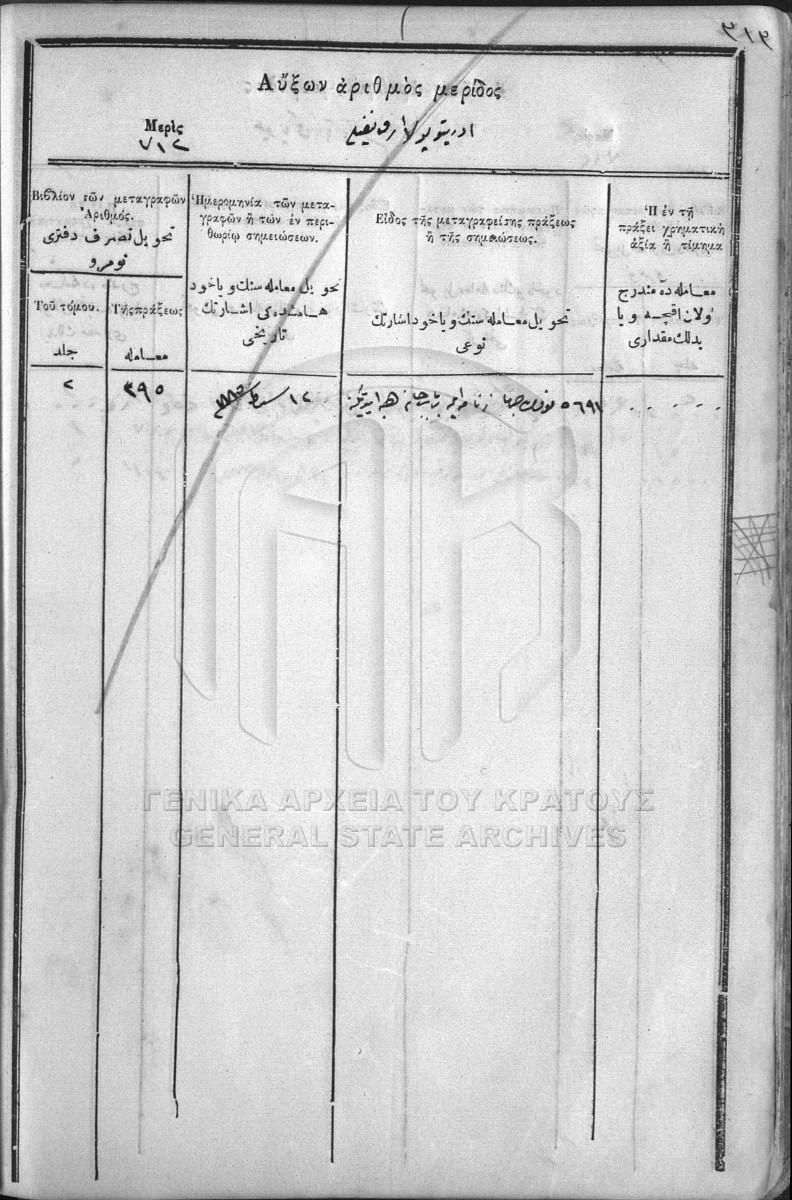 ٣١٩
Αὔξων ἀριθμὸς μερίδος
Μερὶς
٧١٢
Βιβλίον τῶν μεταγραφῶν
Ἀριθμός.
تحويل تصرف دفترى
نومرو
Τοῦ τόμου.
جلد
Τῆς πράξεως
معامله
Ἡμερομηνία τῶν μετα-
γραφῶν ἢ τῶν ἐν περι-
θωρίῳ σημειώσεων.
تحويل معامله سنك ويا خود
هامشنده كى اشارتك
تاريخى
Εἶδος τῆς μεταγραφείσης πράξεως
ἢ τῆς σημειώσεως.
تحويل معامله سنك ويا خود اشارتك
نوعى
Ἡ ἐν τῇ
πράξει χρηματικὴ
ἀξία ἢ τίμημα
معامله ده مندرج
اولان اقچه ويا
بدلك مقدارى
٢
٣٩٥
١٢
ΓΕΝΙΚΑ ΑΡΧΕΙΑ ΤΟΥ ΚΡΑΤΟΥΣ
GENERAL STATE ARCHIVES